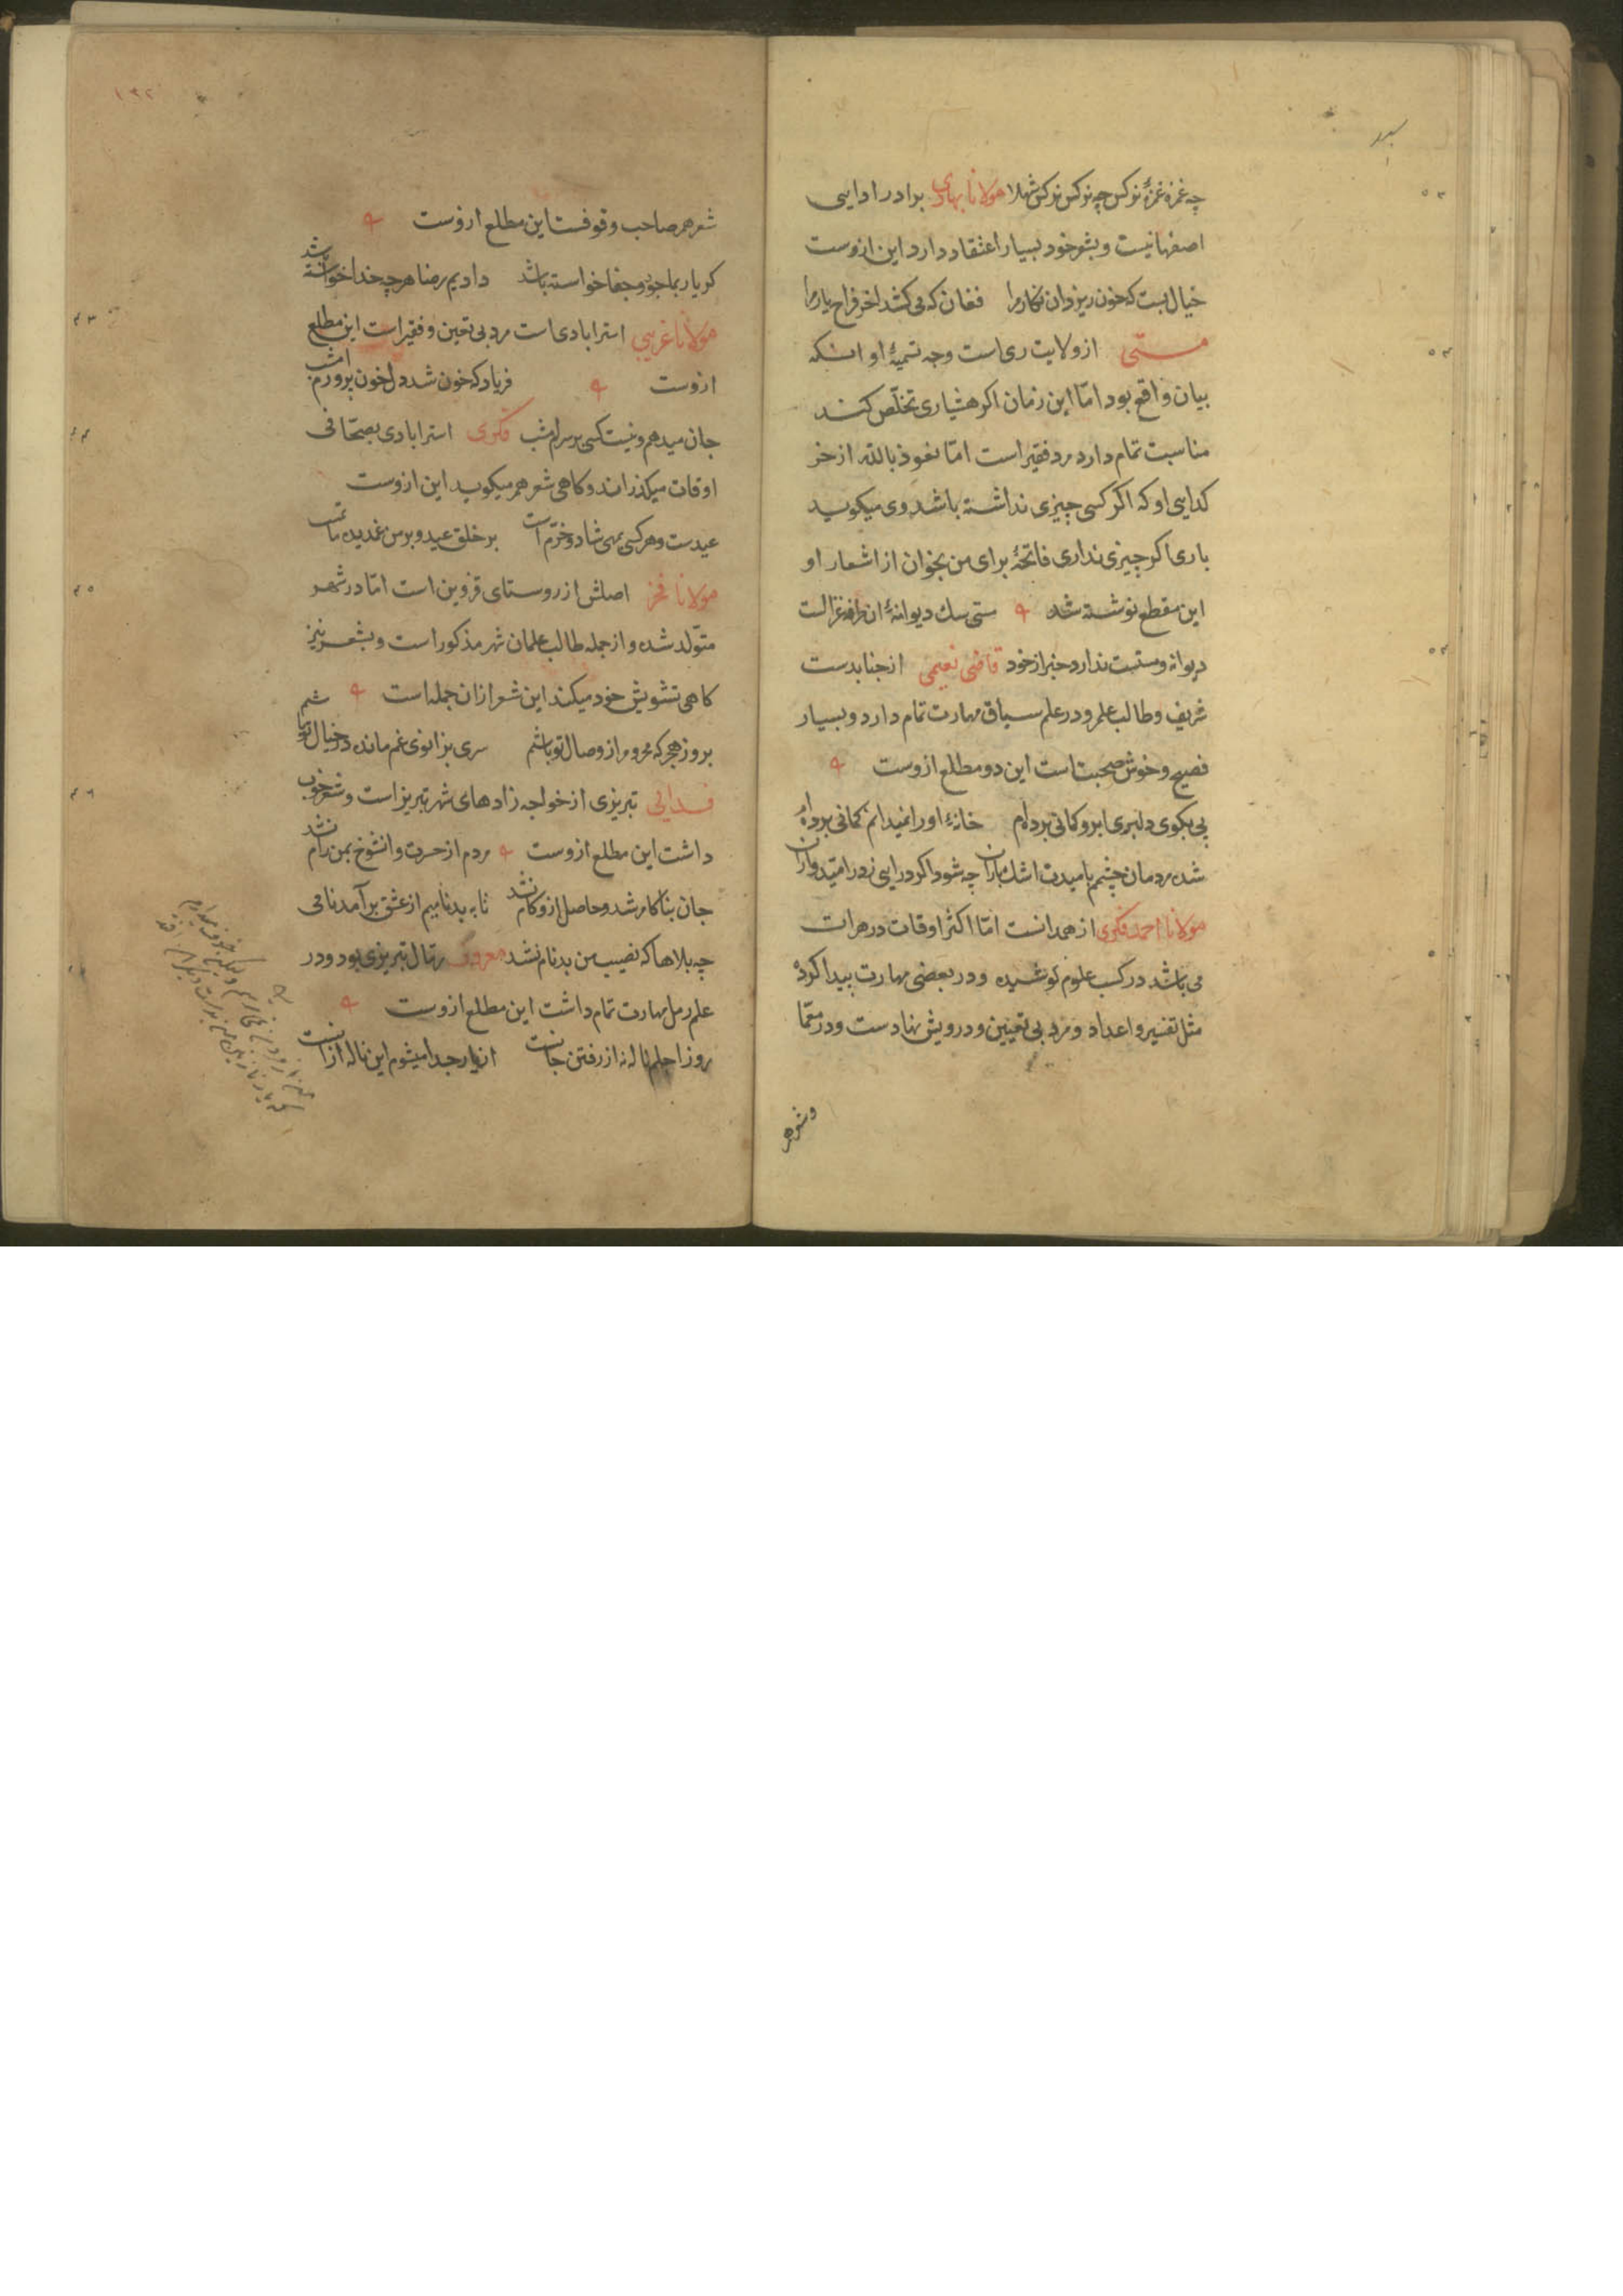 چه غمزه غمزهٔ نرکس چه نرکس نرکس شهلا مولانا بهاری برادر ادایی
اصفهانیست و بشعر خود بسیار اعتقاد دارد این ازوست
خیال بست که خون ریزد ان نکار مرا فغان که می کشد اخر فراح یار مرا
مستی از ولایت ری است وجه تسمیهٔ او انکه
بیان واقع بود امّا این زمان اکر هشیاری تخلّص کند
مناسبت تمام دارد مرد فقیر است امّا نعوذ بالله از خر
کدایی او که اکر کسی چیزی نداشته باشد وی میکوید
باری اکر چیزی نداری فاتحهٔ برای من بخوان از اشعار او
این مقطع نوشته شد مستی سک دیوانهٔ ان طرفه غزالست
دیوانه و مستست ندارد خبر از خود قاضی نعیمی از جنابدست
شریف و طالب علم و در علم سیاق مهارت تمام دارد و بسیار
فصیح و خوش صحبت است این دو مطلع ازوست
پی بکوی دلبری ابرو کمانی برده‌ام خانهٔ او را نمیدانم کمانی برده‌ام
شده مردمان چشمم بامیدت اشک باران چه شود اکر درایی ز در امیدواران
مولانا احمد فکری از همدانست امّا اکثر اوقات در هرات
می باشد در کسب علوم کوشیده و در بعضی مهارت پیدا کرده
مثل تفسیر و اعداد و مرد بی تعیین و درویش نهادست و در معمّا
و شعر هم
١٣٢
شعر هم صاحب وقوفست این مطلع ازوست
کر یار بما جور و جفا خواسته باشد دادیم رضا هر چه خدا خواسته باشد
مولانا غریبی استرابادی است مرد بی تعین و فقیر است این مطلع
ازوست فریاد که خون شد دل خون پرورم امشب
جان میدهم و نیست کسی بر سرم امشب فکری استرابادی بصحّافی
اوقات میکذراند و کاهی شعر هم میکوید این ازوست
عیدست و هر کسی بمهی شاد و خرّم است بر خلق عید و بر من غمدیده ماتم است
مولانا فخر اصلش از روستای قزوین است امّا در شهر
متولّد شده و از جمله طالب علمان شهر مذکور است و بشعر نیز
کاهی تشویش خود میکند این شعر ازان جمله است
بروز هجر که محروم از وصال تو باشم سری بزانوی غم مانده در خیال تو باشم
فدایی تبریزی از خواجه زادهای شهر تبریز است و شعر خوب
داشت این مطلع ازوست مردم از حسرت و انشوخ بمن رام نشد
جان بناکام شد و حاصل ازو کام نشد تا به بدنامیم از عشق برآمد نامی
چه بلاها که نصیب من بدنام نشد معروف رمّال تبریزی بود و در
علم رمل مهارت تمام داشت این مطلع ازوست
روز اجلم ناله نه از رفتن جانست از یار جدا میشوم این ناله ازانست